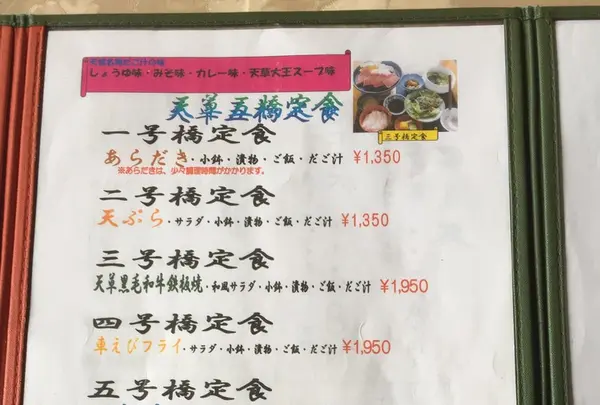 天草名物だご汁の味
しょうゆ味・みそ味・カレー味・天草大王スープ味
天草五橋定食
三号橋定食
一号橋定食
あらだき・小鉢・漬物・ご飯・だご汁 ¥1,350
※あらだきは、少々調理時間がかかります。
二号橋定食
天ぷら・サラダ・小鉢・漬物・ご飯・だご汁 ¥1,350
三号橋定食
天草黒毛和牛鉄板焼・和風サラダ・小鉢・漬物・ご飯・だご汁 ¥1,950
四号橋定食
車えびフライ・サラダ・小鉢・漬物・ご飯・だご汁 ¥1,950
五号橋定食